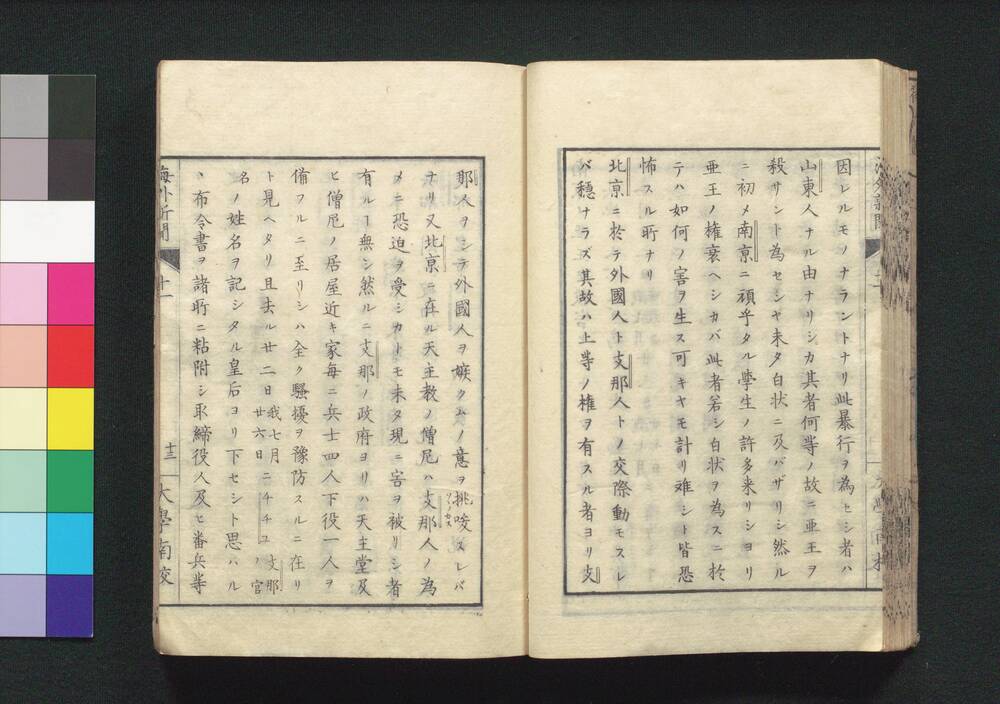 因レルモノナラントナリ此暴行ヲ為セシ者ハ
山東人ナル由ナリシカ其者何等ノ故ニ亜王ヲ
殺サント為セシヤ未タ白状ニ及バザリシ然ル
ニ初メ南京ニ頑乎タル學生ノ許多来リショリ
亜王ノ権衰ヘシカバ此者若シ白状ヲ為スニ於
テハ如何ノ害ヲ生ス可キヤモ計リ難シト皆恐
怖スル所ナリ
北京ニ於テ外國人ト支那人トノ交際動モスレ
バ穏ナラズ其故ハ上等ノ権ヲ有スル者ヨリ支
那人ヲシテ外國人ヲ嫉クムノ意ヲ挑唆スレバ
ソヽノカス
ナリ又北京ニ在ル天主教ノ僧尼ハ支那人ノ為
メニ恐迫ヲ受シカトモ未タ現ニ害ヲ被リシ者
有ルヿ無シ然ルニ支那ノ政府ヨリハ天主堂及
ヒ僧尼ノ居屋近キ家毎ニ兵士四人下役一人ヲ
備フルニ至リシハ全ク騒擾ヲ豫防スルニ在リ
ト見ヘタリ且去ル廿二日我七月廿六日ニチチユノ支那ノ官名
ノ姓名ヲ記シタル皇后ヨリ下セシト思ハル
ヽ布令書ヲ諸所ニ粘附シ取締役人及ヒ番兵等
海外新聞 廿一 十三 大學南校